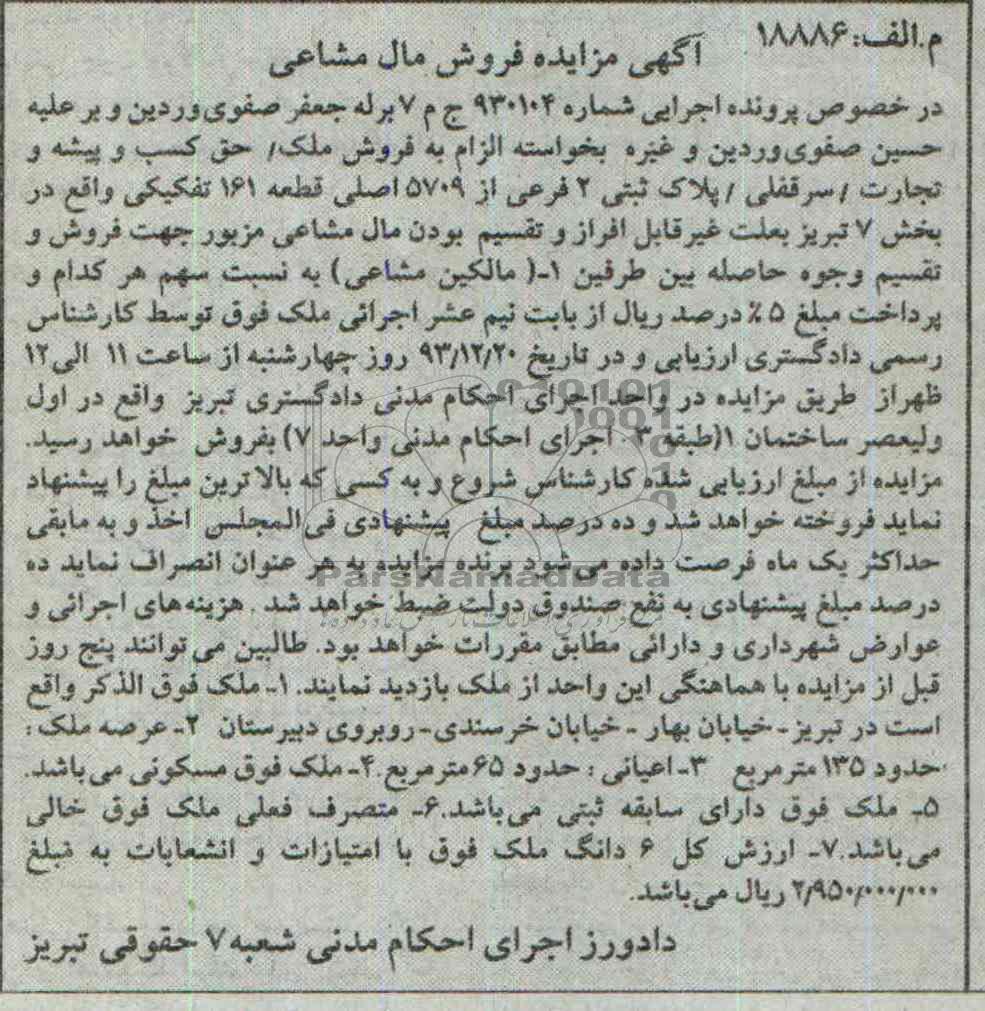 م.الف: ۱۸۸۸۶
آگهی مزایده فروش مال مشاعی
در خصوص پرونده اجرایی شماره ۹۳۰۱۰۴ ج م ۷ برله جعفر صفوی‌وردین و بر علیه
حسین صفوی‌وردین و غیره بخواسته الزام به فروش ملک/ حق کسب و پیشه و
تجارت /سرقفلی /پلاک ثبتی ۲ فرعی از ۵۷۰۹ اصلی قطعه ۱۶۱ تفکیکی واقع در
بخش ۷ تبریز بعلت غیرقابل افراز و تقسیم بودن مال مشاعی مزبور جهت فروش و
تقسیم وجوه حاصله بین طرفین ۱-( مالکین مشاعی) به نسبت سهم هر کدام و
پرداخت مبلغ ۵٪ درصد ریال از بابت نیم عشر اجرائی ملک فوق توسط کارشناس
رسمی دادگستری ارزیابی و در تاریخ ۹۳/۱۲/۲۰ روز چهارشنبه از ساعت ۱۱ الی۱۲
ظهراز طریق مزایده در واحد اجرای احکام مدنی دادگستری تبریز واقع در اول
ولیعصر ساختمان ۱(طبقه ۳ اجرای احکام مدنی واحد ۷) بفروش خواهد رسید.
مزایده از مبلغ ارزیابی شده کارشناس شروع و به کسی که بالاترین مبلغ را پیشنهاد
نماید فروخته خواهد شد و ده درصد مبلغ پیشنهادی فی‌المجلس اخذ و به مابقی
حداکثر یک ماه فرصت داده می‌شود برنده مزایده به هر عنوان انصراف نماید ده
درصد مبلغ پیشنهادی به نفع صندوق دولت ضبط خواهد شد . هزینه‌های اجرائی و
عوارض شهرداری و دارائی مطابق مقررات خواهد بود. طالبین می‌توانند پنج روز
قبل از مزایده با هماهنگی این واحد از ملک بازدید نمایند. ۱- ملک فوق الذکر واقع
است در تبریز - خیابان بهار - خیابان خرسندی - روبروی دبیرستان ۲- عرصه ملک :
حدود ۱۳۵ مترمربع ۳- اعیانی : حدود ۶۵ مترمربع ۴- ملک فوق مسکونی می‌باشد.
۵- ملک فوق دارای سابقه ثبتی می‌باشد.۶- متصرف فعلی ملک فوق خالی
می‌باشد.۷- ارزش کل ۶ دانگ ملک فوق با امتیازات و انشعابات به مبلغ
۲/۹۵۰/۰۰۰/۰۰۰ ریال می‌باشد.
دادورز اجرای احکام مدنی شعبه ۷ حقوقی تبریز
ParsNamadData